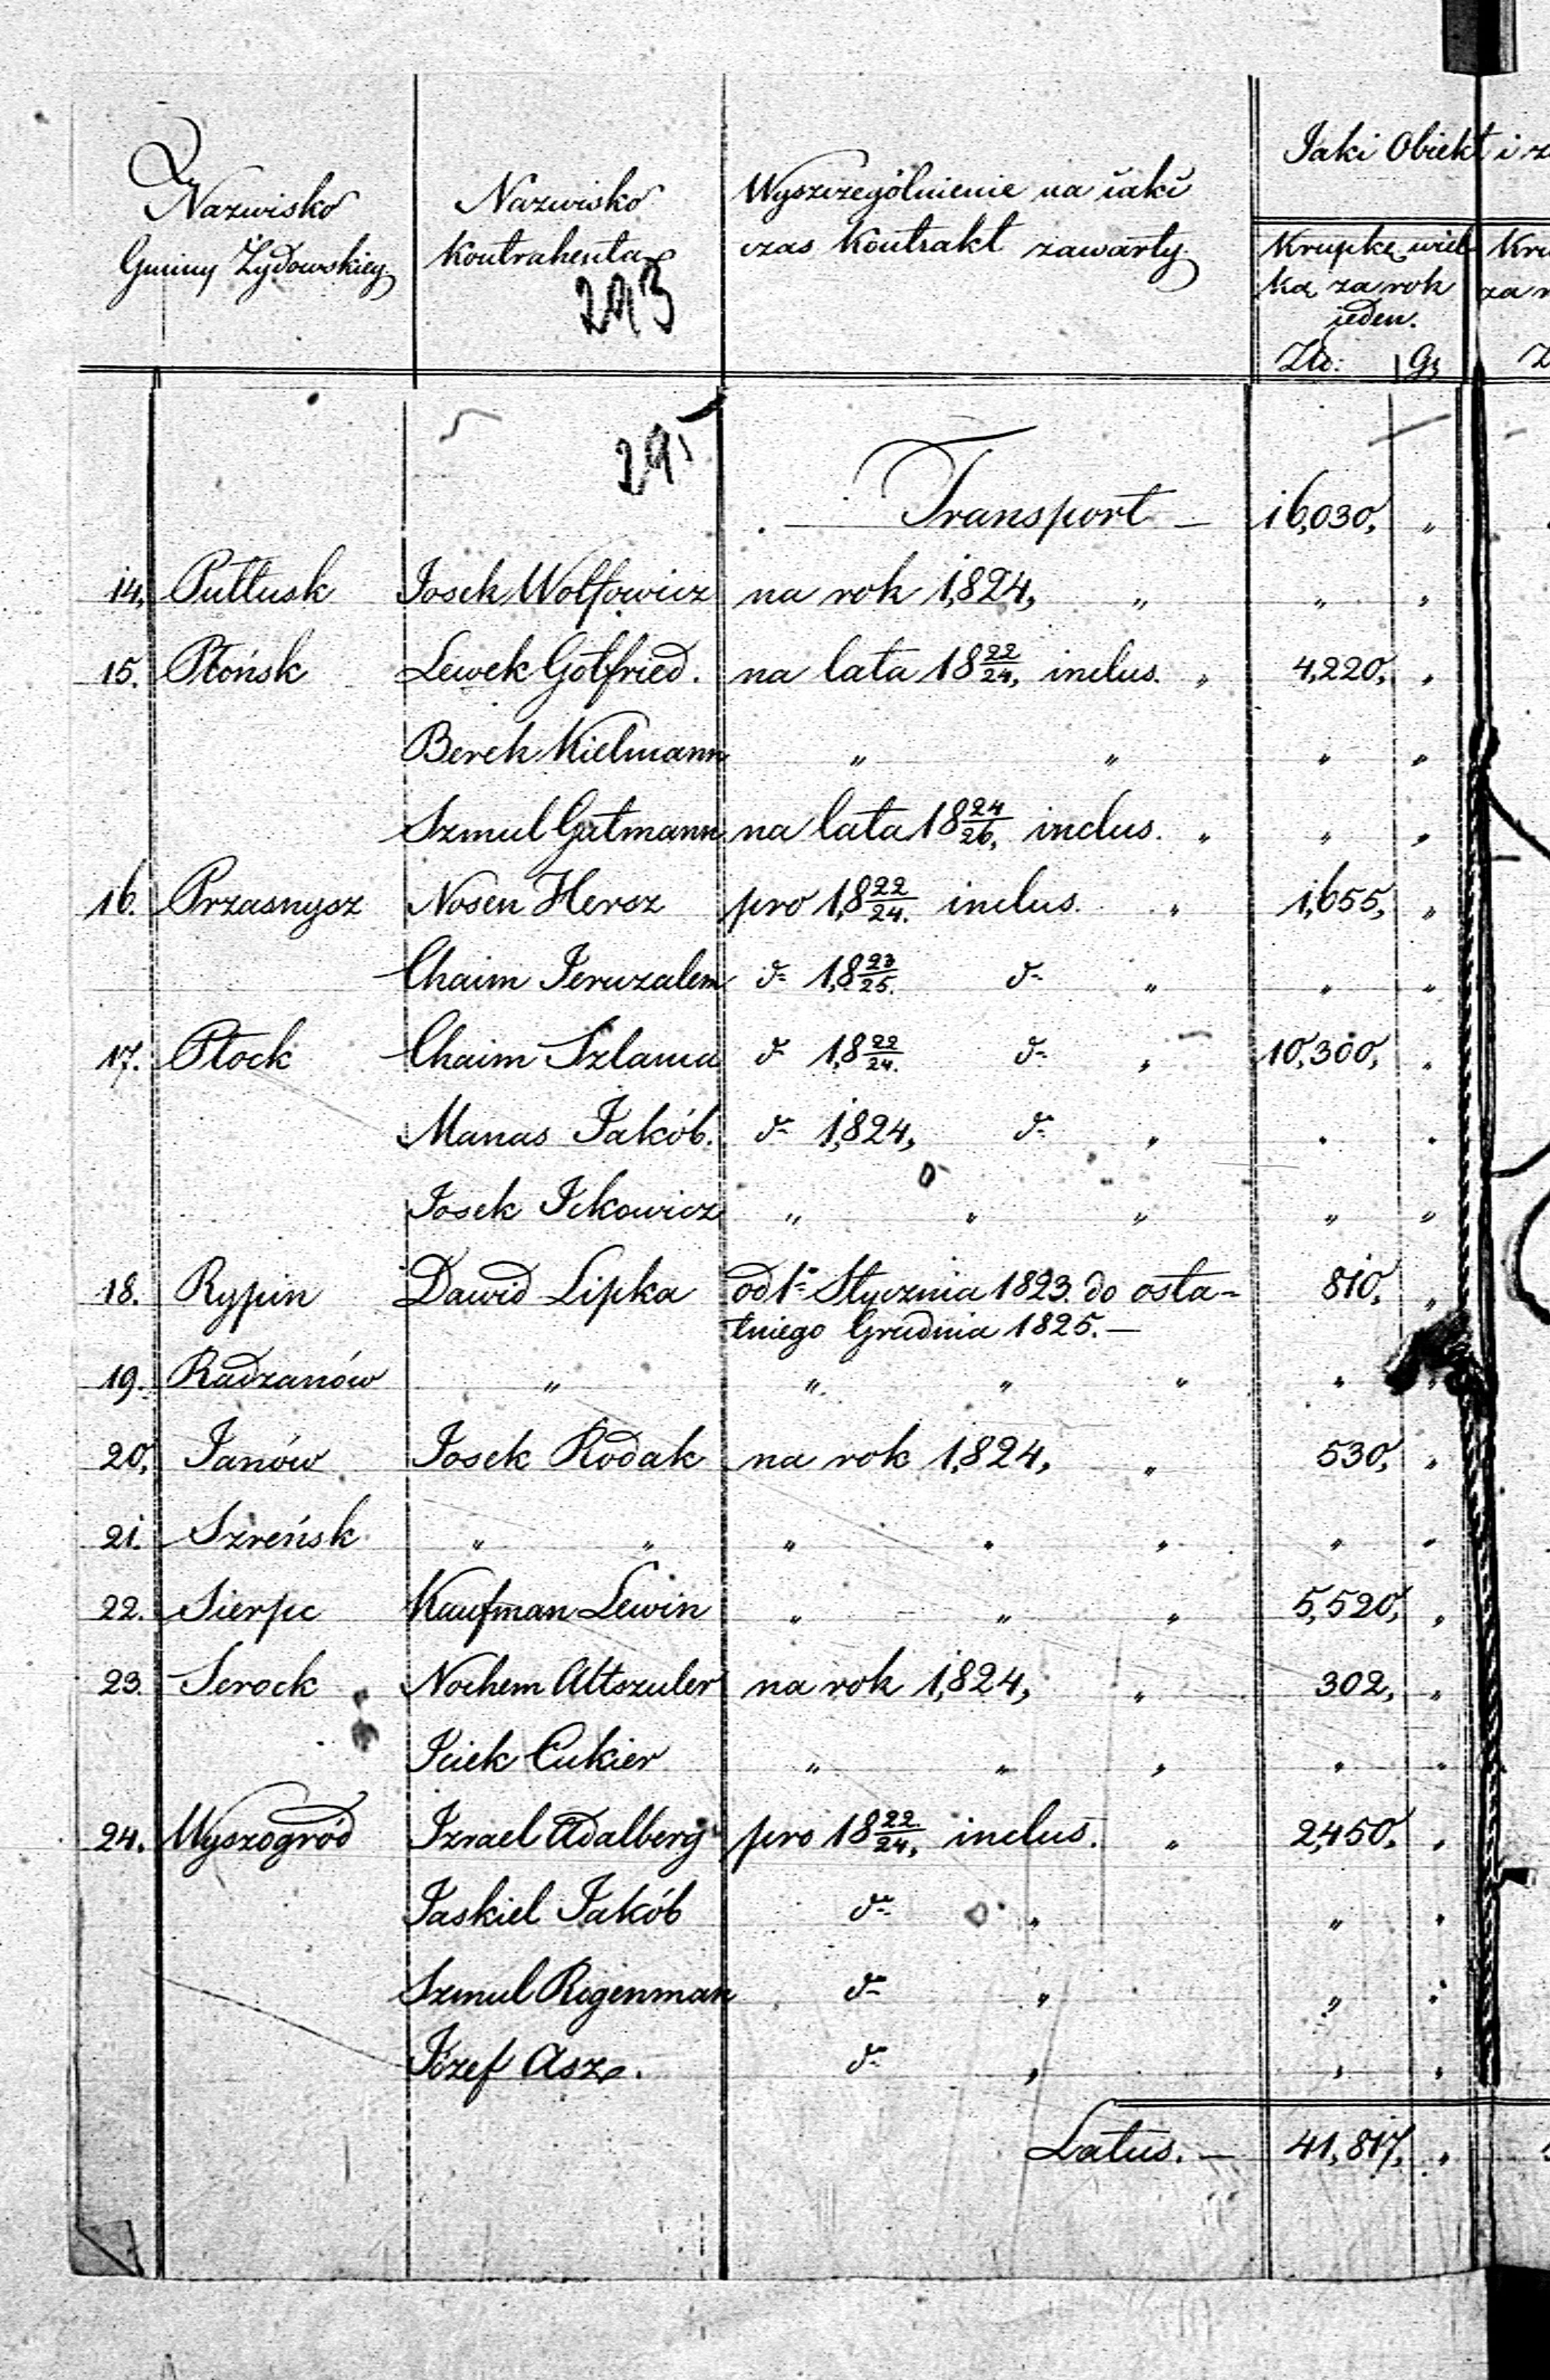 Nazwisko
Gminy Żydowskiey
Nazwisko
Kontrahenta
293
Wyszczególnienie na iaki
czas Kontrakt zawarty
Jaki Obiekt i
Krupkę wiel
ką za rok
ieden.
Złł: Gr
295
Transport — 16,030, "
14, Pułtusk Josek Wolfowicz na rok 1,824, " " "
15. Płońsk Lewek Gotfried. na lata 18 22/24, inclus. " 4,220, "
Berek Kielmann " " " "
Szmul Gutmann na lata 18 24/26, inclus. " " "
16. Przasnysz Nosen Hersz pro 1,8 22/24. inclus. " 1,655, "
Chaim Jeruzalem d- 1,8 23/25. d- " " "
17. Płock Chaim Szlama d- 1,8 22/24. d- " 10,300, "
Manas Jakób. d- 1,824, d- " " "
Josek Ickowicz " " " " "
18. Rypin Dawid Lipka od 1- Stycznia 1823. do osta- 810, "
tniego Grudnia 1825. —
19. Radzanów " " " " " "
20, Janów Josek Rodak na rok 1,824, " 530, "
21. Szreńsk " " " " " " "
22. Sierpc Kaufman Lewin " " " 5,520, "
23. Serock Nochem Altszuler na rok 1,824, " 302, "
Iciek Cukier " " " " "
24. Wyszogród Izrael Adalberg pro 18 22/24, inclus. " 2,450, "
Jaskiel Jakób d- " " "
Szmul Rogenman d- " " "
Józef Asz. d- " " "
Latus. — 41,817, "